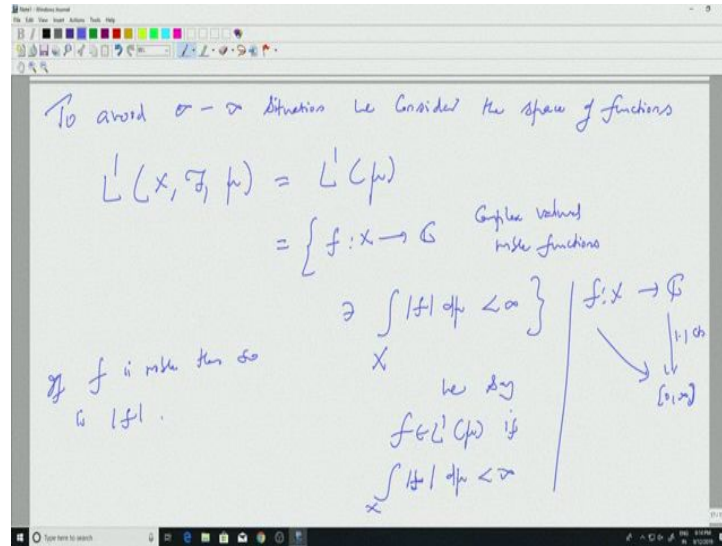 Note1 - Windows Journal
File Edit View Insert Actions Tools Help
To avoid ∞ - ∞ Situation we Consider the space of functions
L¹(X, F, μ) = L¹(μ)
= { f : X → ℂ Complex valued
mble functions
∋ ∫_X |f| dμ < ∞ }
f : X → ℂ
|·| cts
[0, ∞]
If f is mble then so
is |f| .
We say
f ∈ L¹(μ) if
∫_X |f| dμ < ∞
Type here to search
ENG
IN